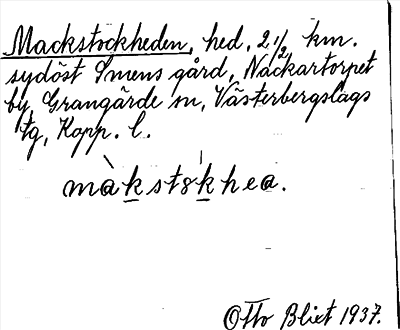 Mackstockheden, hed, 2 1/2 km.
sydöst Smens gård, Nackartorpet
by, Grangärde sn, Västerbergslags
tg, Kopp. l.
màkst8khea.
Otto Blixt 1937.